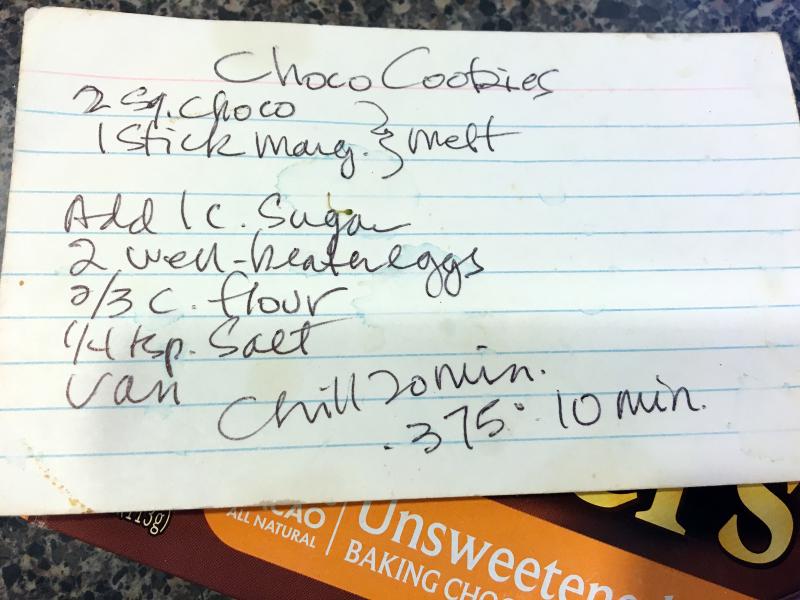 Choco Cookies
2 Sq. choco
1 Stick marg. } melt
Add 1 c. Sugar
2 well-beaten eggs
2/3 c. flour
1/4 tsp. Salt
Van
Chill 20 min.
375° 10 min.
113g)
CACAO
ALL NATURAL
Unsweetened
BAKING CHOC